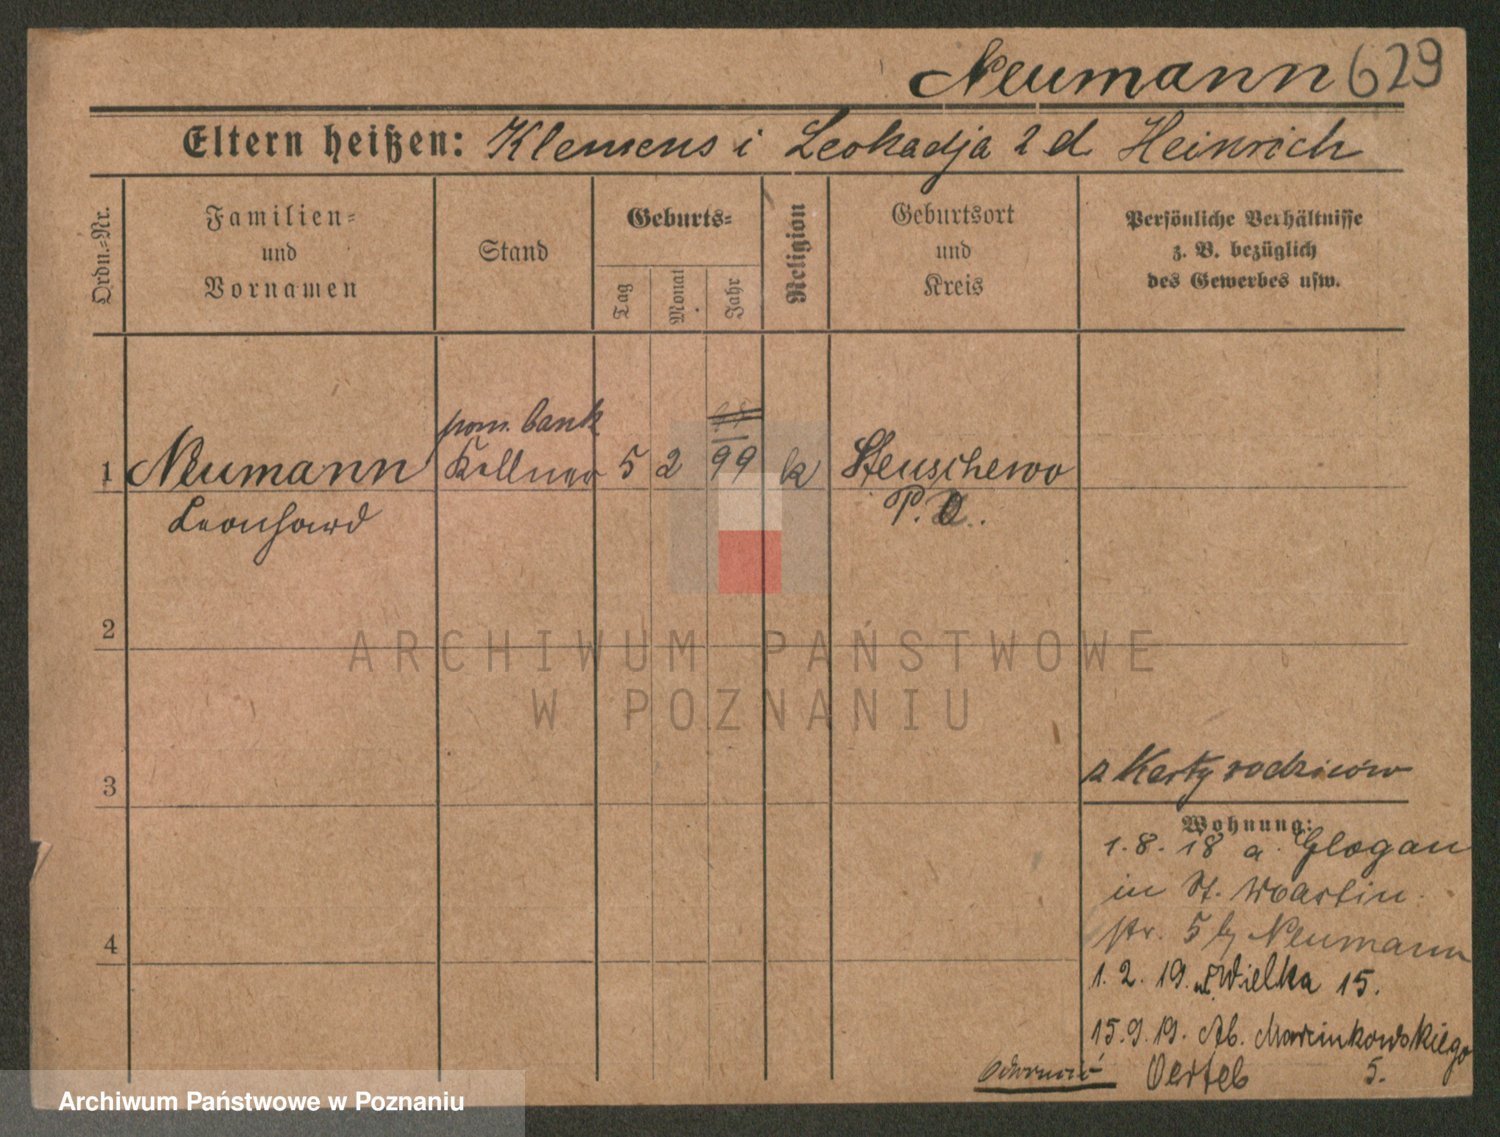 Neumann 629
Eltern heißen: Klemens i Leokadja z d. Heinrich
Ordn.-Nr.
Familien-
und
Vornamen
Stand
Geburts-
Tag
Monat
Jahr
Religion
Geburtsort
und
Kreis
Persönliche Verhältnisse
z. B. bezüglich
des Gewerbes usw.
pom. bank
1 Neumann Kellner 5 2 99 k Stenschewo
Leonhard P. O.
2
ARCHIWUM PAŃSTWOWE
W POZNANIU
3
z Karty rodziców
Wohnung:
1. 8. 18 a. Glogau
in St. Martin
str. 5 b/ Neumann
4
1. 2. 19. ul. Wielka 15.
15. 9. 19. Al. Marcinkowskiego
Odwrócić Oertel 5.
Archiwum Państwowe w Poznaniu